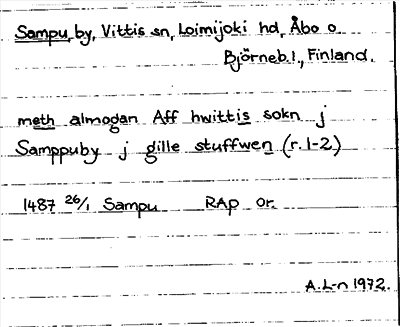 Sampu, by, Vittis sn, Loimijoki hd, Åbo o.
Björneb. l., Finland.
meth almogan Aff hwittis sokn j
Samppuby j gille stuffwen (r. 1-2)
1487 26/1 Sampu RAp or.
A.L-n 1972.